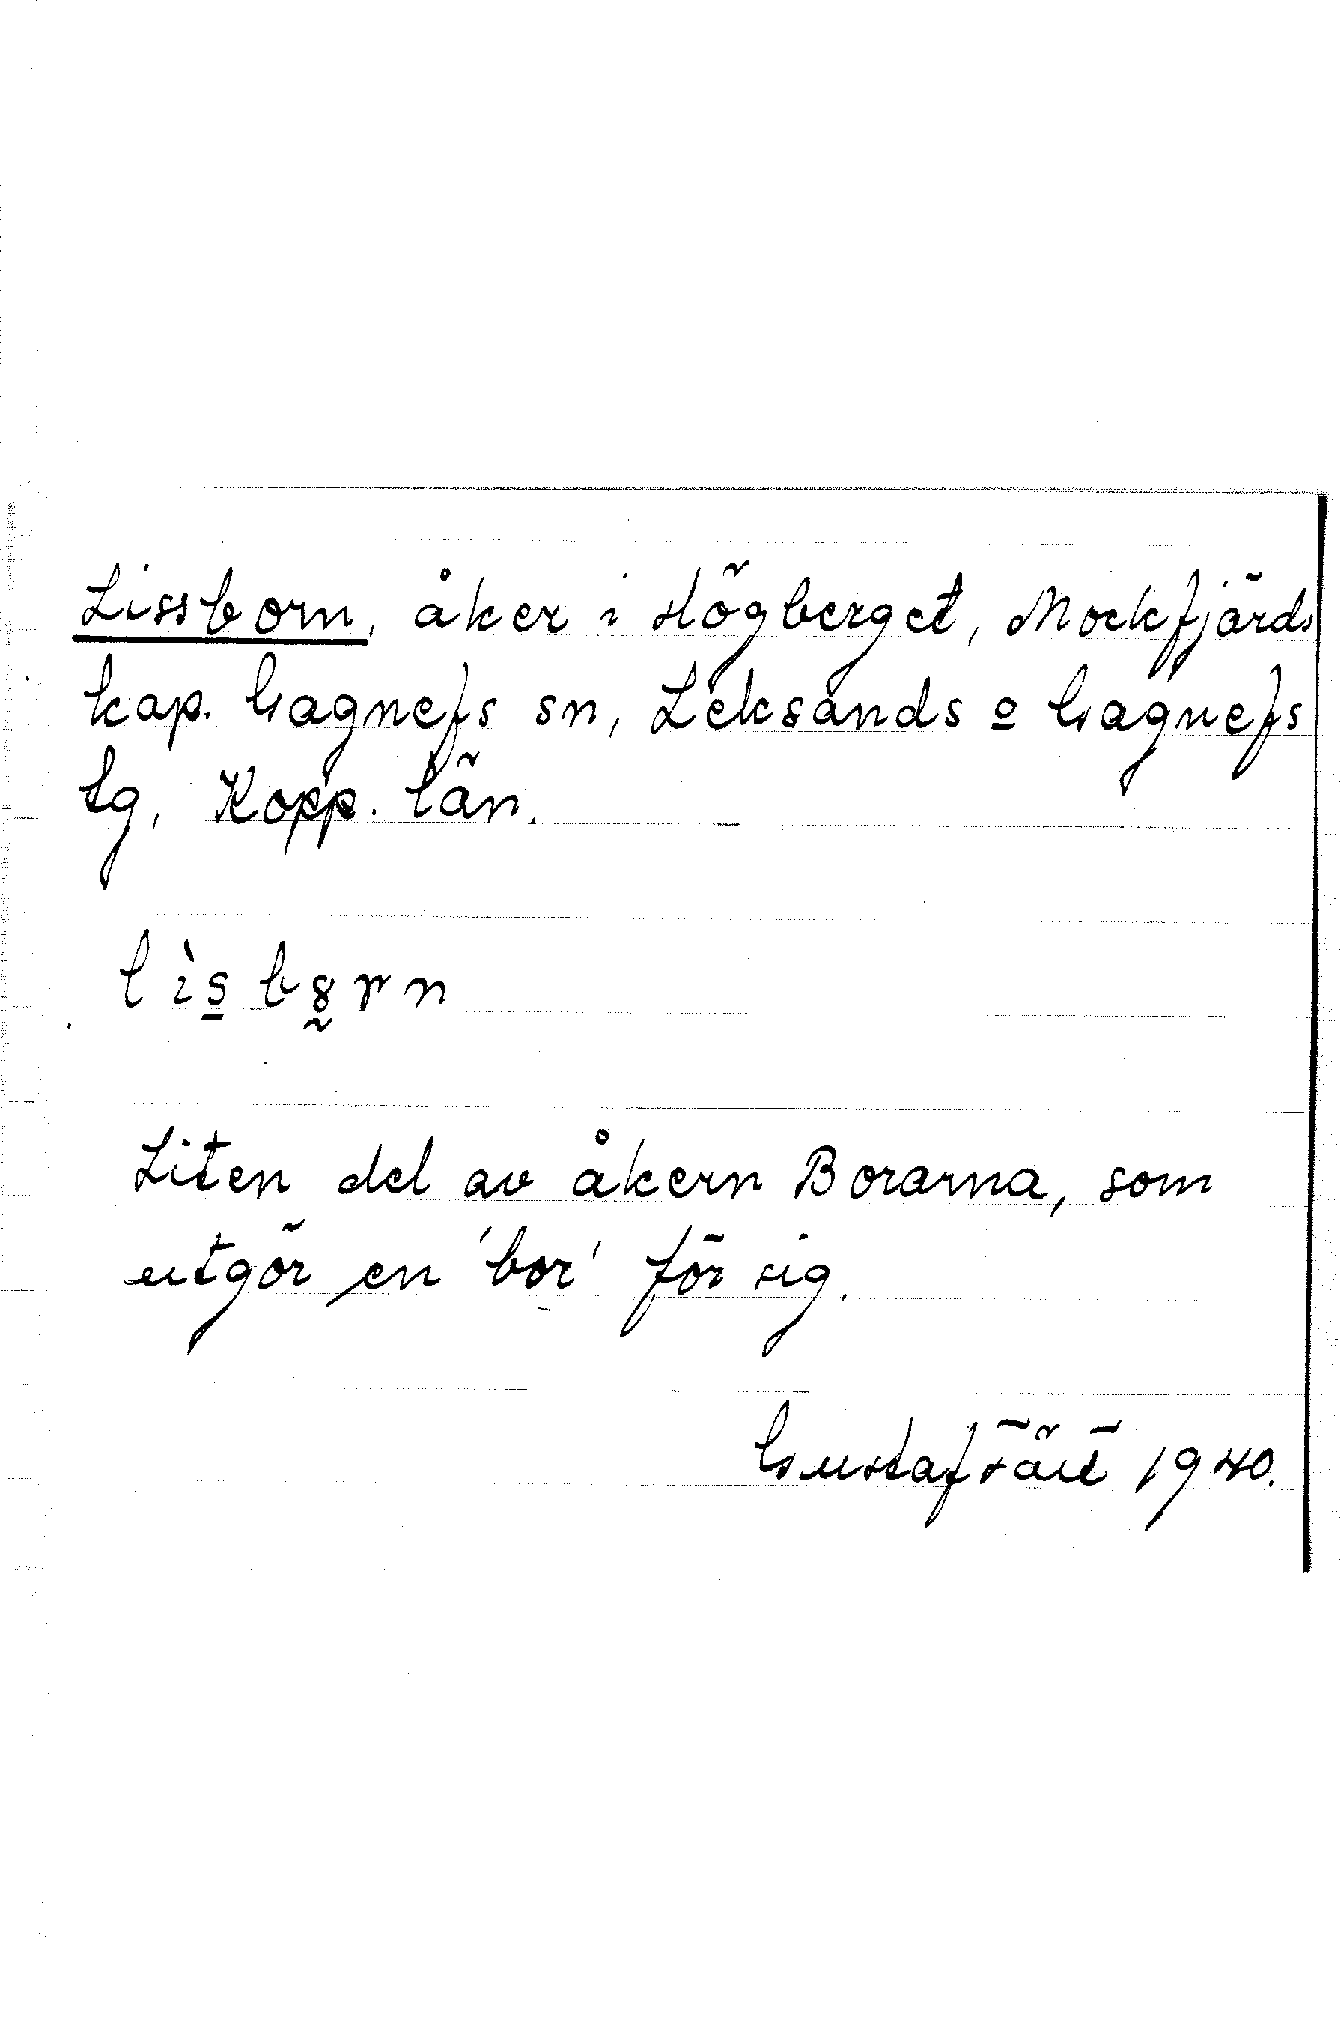 Lissborn, åker i Högberget, Mockfjärds
kap. Gagnefs sn, Leksands o Gagnefs
tg, Kopp. län.
lìsb8rn
Liten del av åkern Borarna, som
utgör en 'bor' för sig.
1940.